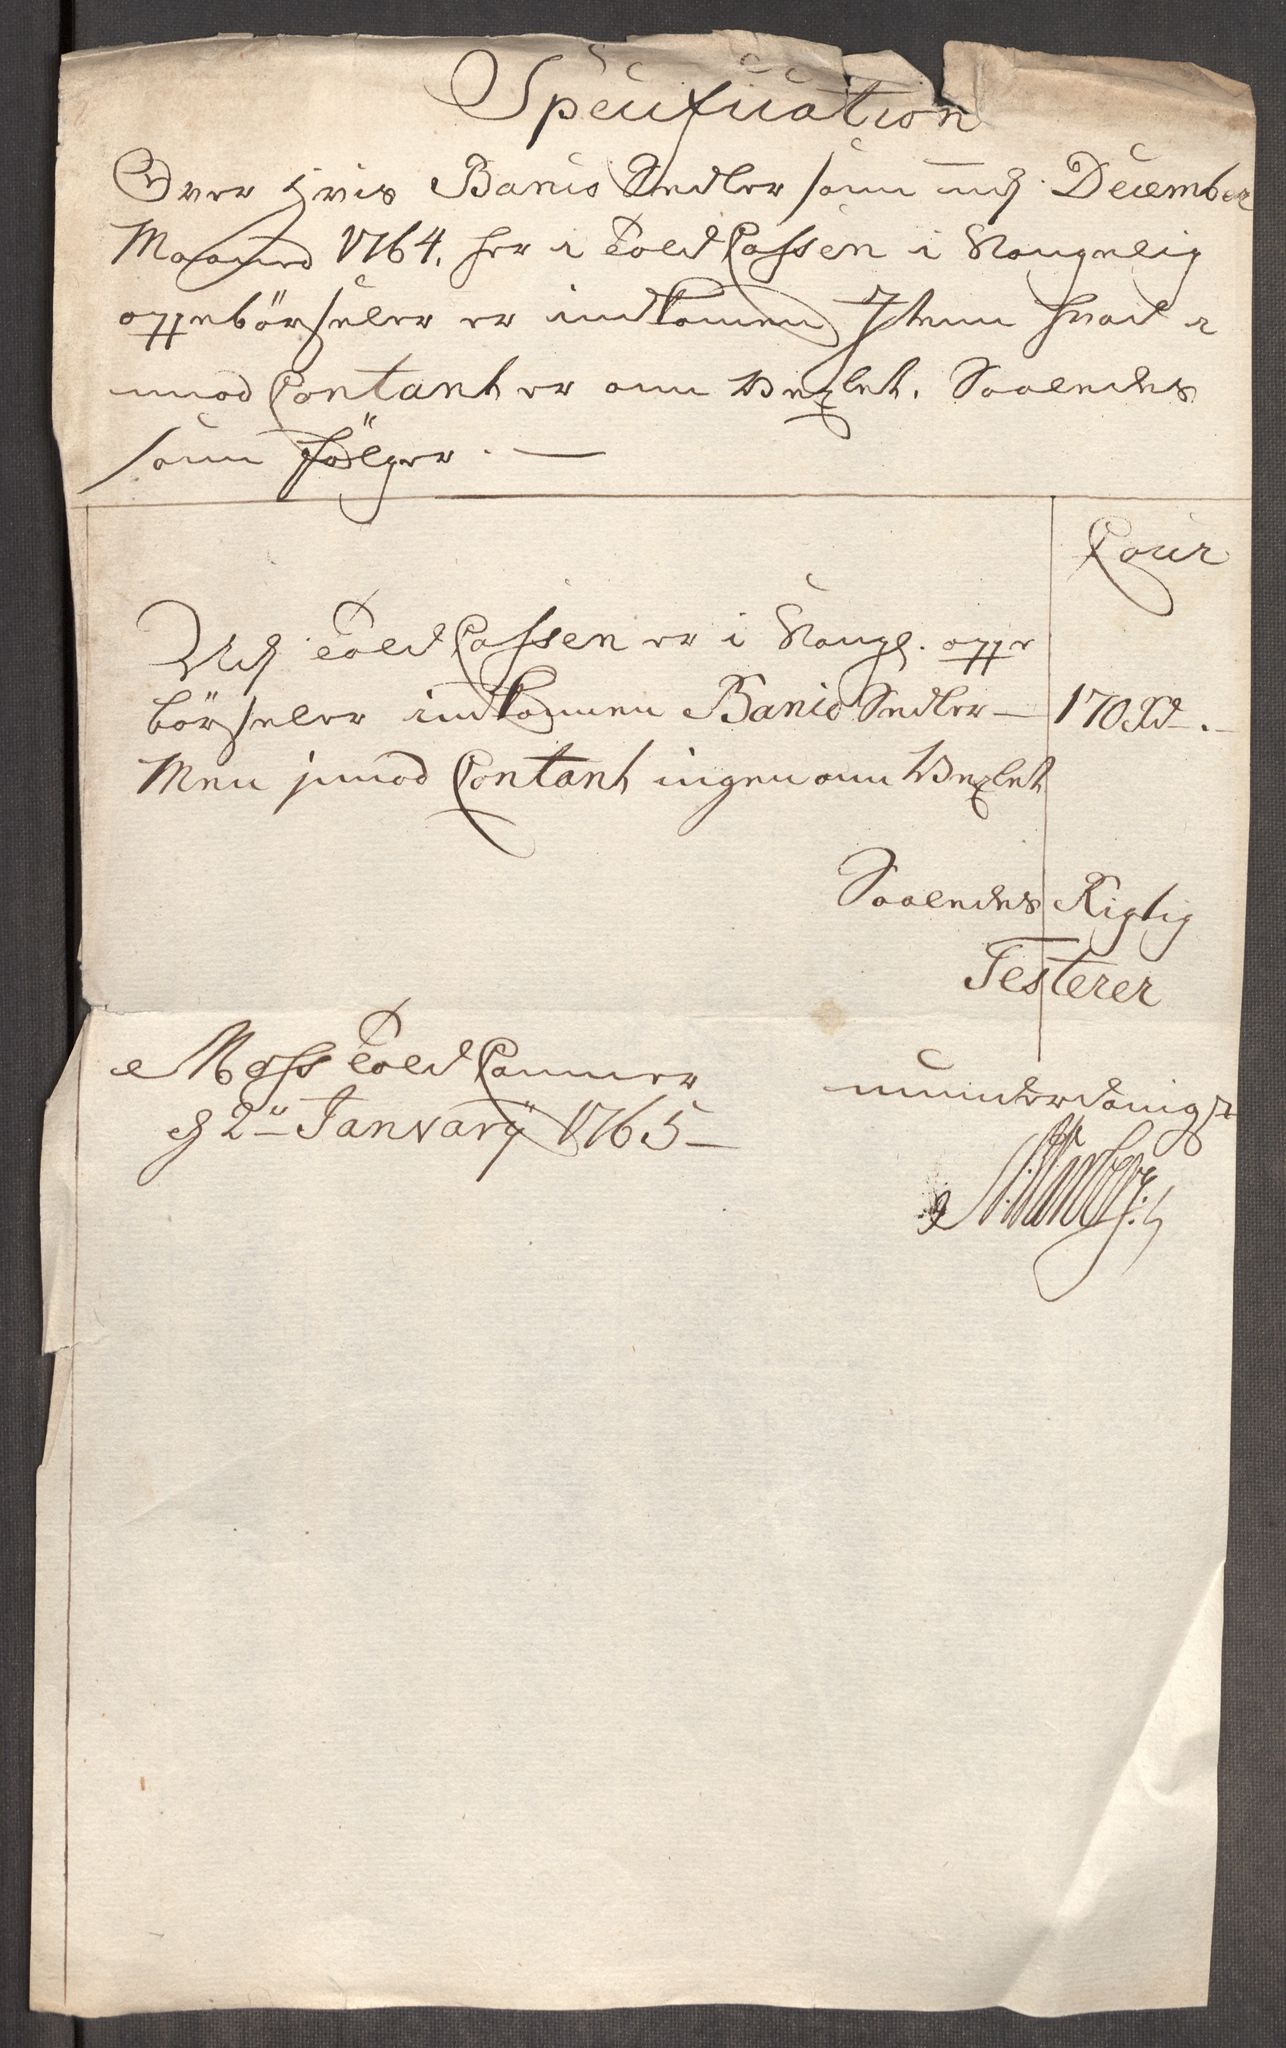 Specification
Over hvis Banco Sedler som udj December
Maaned 1764. her i Told Cassen i Kongelig
oppebörseler er indkomen Jtem hvad i
imod Contant er om Vexlet. Saaledes
som fölger. —
Cour
Udj Told Cassen er i Kongl. oppe
börseler indkommen Banco Sedler — 170 Rd —. —
Men jmod Contant ingen om Vexlet
Saaledes Rigtig
Testerer
Moss Told Cammer
d 2n Januarÿ 1765 —
unnderdanigst